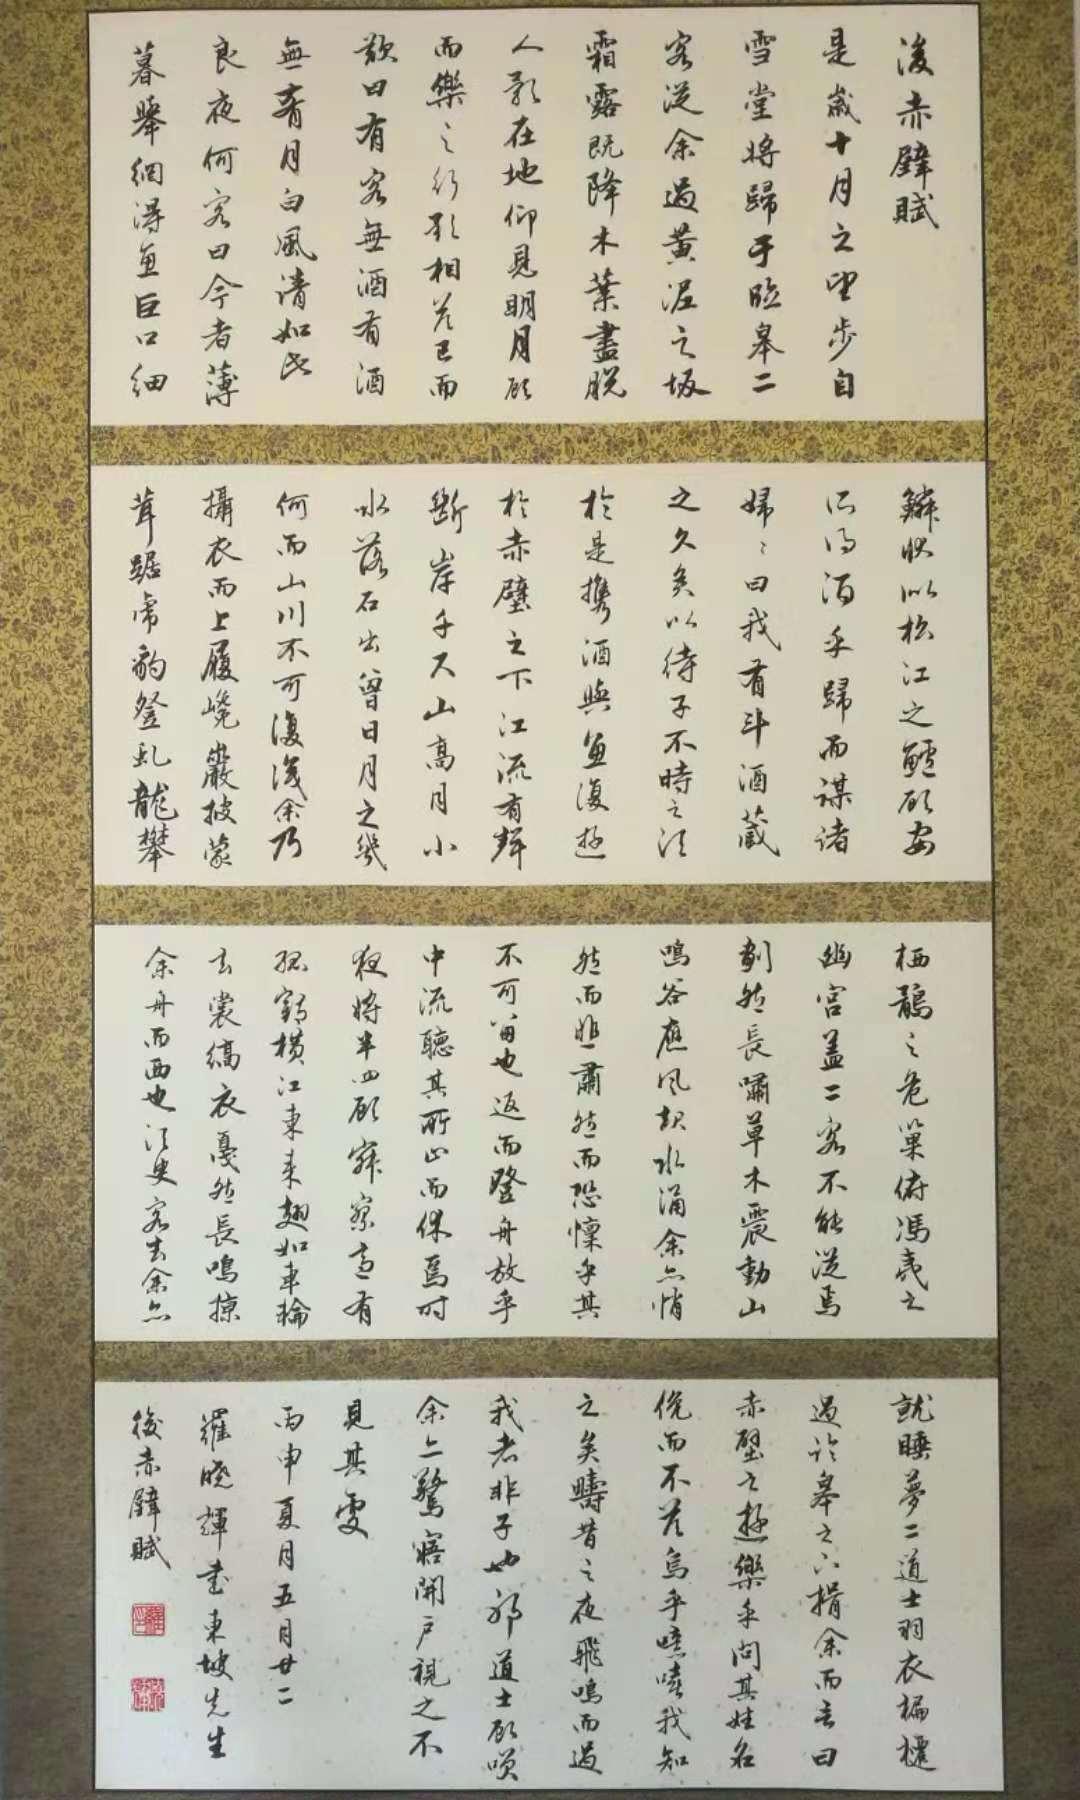 後赤壁賦
是歲十月之望步自
雪堂將歸于臨皋二
客從余過黃泥之坂
霜露既降木葉盡脫
人影在地仰見明月顧
而樂之行歌相答已而
歎曰有客無酒有酒
無肴月白風清如此
良夜何客曰今者薄
暮舉網得魚巨口細
鱗狀似松江之鱸顧安
所得酒乎歸而謀諸
婦〻曰我有斗酒藏
之久矣以待子不時之須
於是攜酒與魚復遊
於赤壁之下江流有聲
斷岸千尺山高月小
水落石出曾日月之幾
何而山川不可復識余乃
攝衣而上履巉巖披蒙
茸踞虎豹登虬龍攀
栖鶻之危巢俯馮夷之
幽宮蓋二客不能從焉
劃然長嘯草木震動山
鳴谷應風起水涌余亦悄
然而悲肅然而恐懍乎其
不可留也返而登舟放乎
中流聽其所止而休焉時
夜將半四顧寂寥適有
孤鶴橫江東來翅如車輪
玄裳縞衣戛然長鳴掠
余舟而西也須臾客去余亦
就睡夢二道士羽衣褊褼
過臨皋之下揖余而言曰
赤壁之遊樂乎問其姓名
俛而不答烏乎噫嘻我知
之矣疇昔之夜飛鳴而過
我者非子也邪道士顧唉
余亦驚寤開戶視之不
見其處
丙申夏月五月廿二
羅曉輝書東坡先生
後赤壁賦